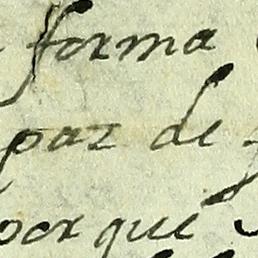 forma
paz de
porque